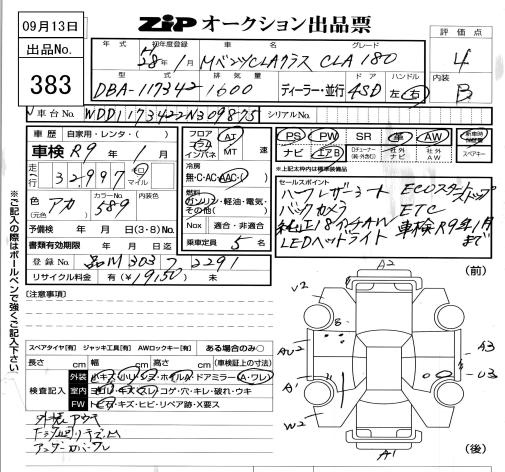 09月13日
出品No.
383
ZiP オークション出品票
評価点
4
内装
B
年式 初年度登録 車名 グレード
H28年1月 MベンツCLAクラス CLA180
型式 排気量 ドア ハンドル
DBA-117342 1600 ディーラー・並行 4SD 左・右
車台No. WDD1173422N309875 シリアルNo.
車歴 自家用・レンタ・( )
車検 R9年1月
走行 32,997 キロ マイル
色 アカ カラーNo. 589 内装色
(元色)
予備検 年 月 日(3・8)No.
書類有効期限 年 月 日迄
登録No. 303 3291
リサイクル料金 有(¥19150)未
フロア コラム インパネ AT MT 速
冷房
無・C・AC・AAC
燃料
ガソリン・軽油・電気・その他( )
Nox 適合・非適合
乗車定員 5名
PS PW SR 革 AW
ナビ エアB Dチューナー 社外ナビ 社外AW スペアキー
※上記太枠内は標準装備品
セールスポイント
ハーフレザーシート ECOスタートストップ
バックカメラ ETC
純正18インチAW 車検R9年1月まで
LEDヘッドライト
※ご記入の際はボールペンで強くご記入下さい
[注意事項]
スペアタイヤ[有] ジャッキ工具[有] AWロックキー[有] ある場合のみ○
長さ cm 幅 cm 高さ cm (車検証上の寸法)
検査記入
外装 小キズ・小リペ・シミ・ホイルA・ドアミラー(A・ワレ)
室内 ヨゴレ・キズ・スレ・コゲ・穴・キレ・破れ・ウキ
FW トビ石・キズ・ヒビ・リペア跡・X要ス
アンダーカバーワレ
(前)
A2
V2
B
AU2
A3
U3
A1
W2
A1
(後)